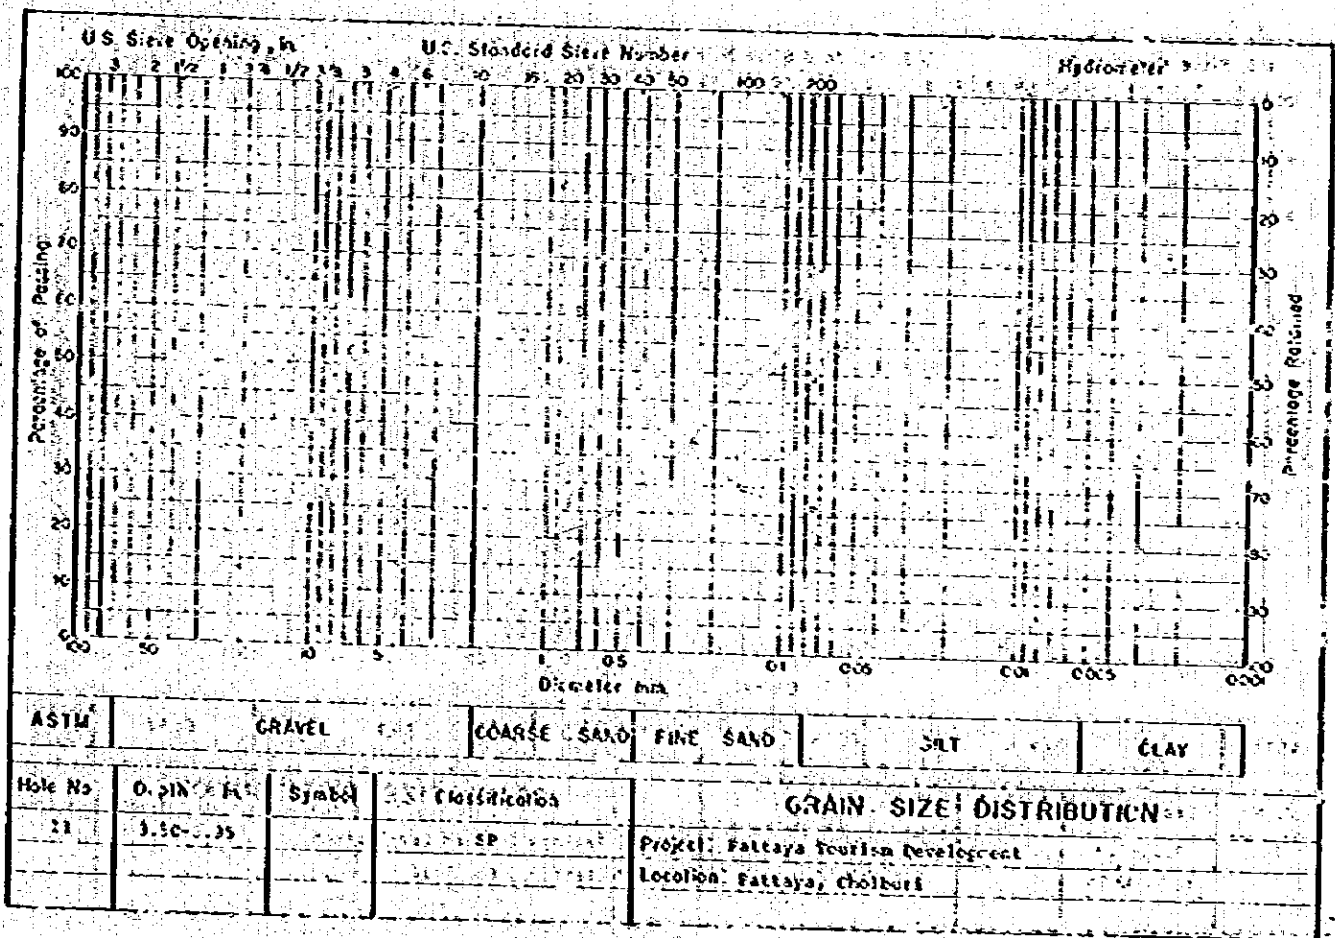 U.S. Sieve Opening, in. U.S. Standard Sieve Number Hydrometer
3 2 1 1/2 1 3/4 1/2 3/8 3 4 6 10 16 20 30 40 50 100 200
100 0
90 10
80 20
70 30
60 40
50 50
40 60
30 70
20 80
10 90
0 100
Percentage of Passing
Percentage Retained
100 50 10 5 1 0.5 0.1 0.05 0.01 0.005 0.001
Diameter mm.
ASTM GRAVEL COARSE SAND FINE SAND SILT CLAY
Hole No Depth Symbol Classification GRAIN SIZE DISTRIBUTION
SP Project: Pattaya Tourism Development
Location: Pattaya, Cholburi